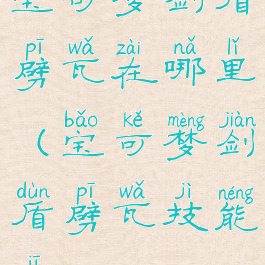 宝可梦剑盾
pī wǎ zài nǎ lǐ
劈瓦在哪里
bǎo kě mèng jiàn
（宝可梦剑
dùn pī wǎ jì néng
盾劈瓦技能